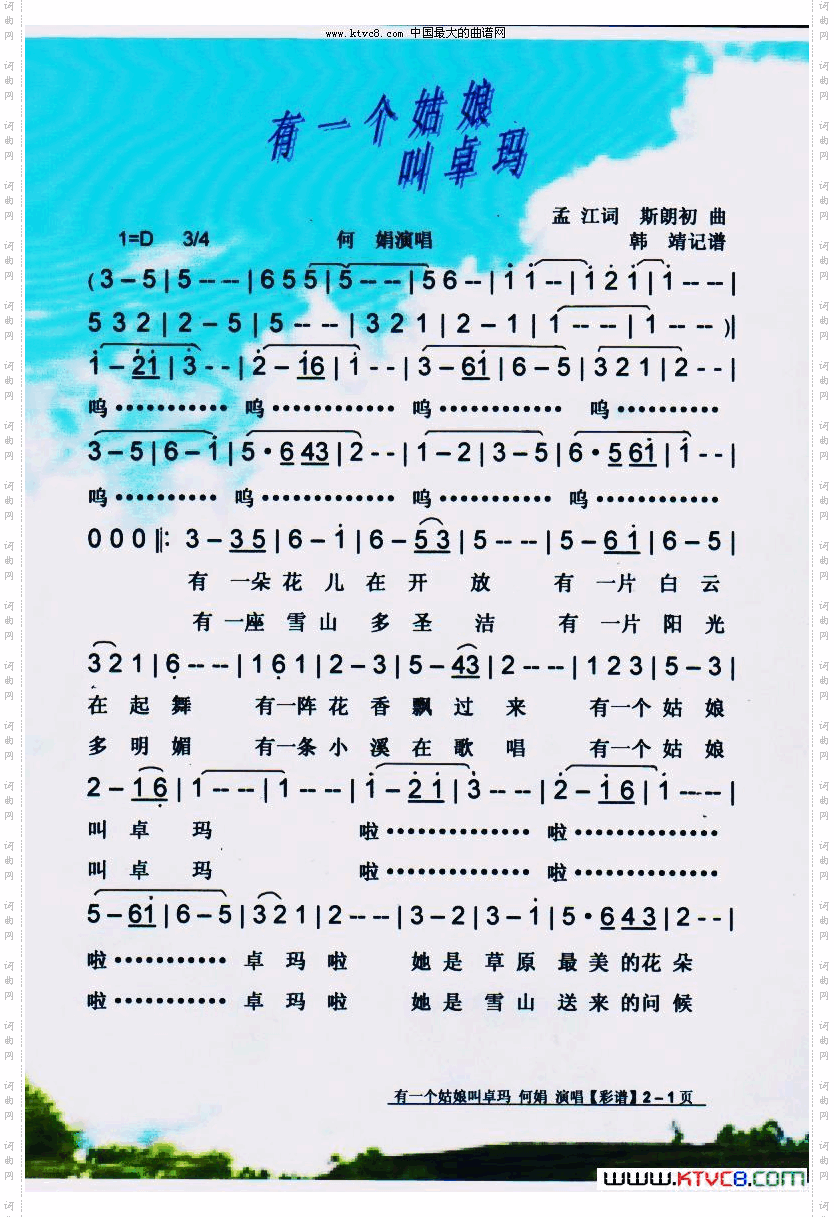 www.ktvc8.com 中国最大的曲谱网
有一个姑娘
叫卓玛
孟 江词 斯朗初 曲
1=D 3/4 何 娟演唱 韩 靖记谱
(3–5|5---|655|5---|56--|i i--|i 2 i|i---|
532|2–5|5---|321|2–1|1---|1---)||
i–2i|3--|2–i6|i--|3–6i|6–5|321|2--|
呜··········· 呜············ 呜············ 呜··········
3–5|6–i|5·643|2--|1–2|3–5|6·56i|i--|
呜··········· 呜············ 呜············ 呜··········
000||:3–35|6–i|6–53|5---|5–6i|6–5|
有 一朵花 儿 在 开 放 有 一片 白 云
有 一座 雪 山 多 圣 洁 有 一片 阳 光
321|6---|161|2–3|5–43|2---|123|5–3|
在 起 舞 有一阵 花 香 飘 过 来 有一个 姑 娘
多 明 媚 有一条 小 溪 在 歌 唱 有一个 姑 娘
2–16|1---|1---|i–2i|3---|2–i6|i----|
叫 卓 玛 啦·············· 啦··············
叫 卓 玛 啦·············· 啦··············
5–6i|6–5|321|2---|3–2|3–i|5·643|2--|
啦··········· 卓 玛 啦 她 是 草 原 最 美 的花 朵
啦··········· 卓 玛 啦 她 是 雪 山 送 来 的问 候
有一个姑娘叫卓玛 何娟 演唱【彩谱】2–1页
www.KTVC8.com